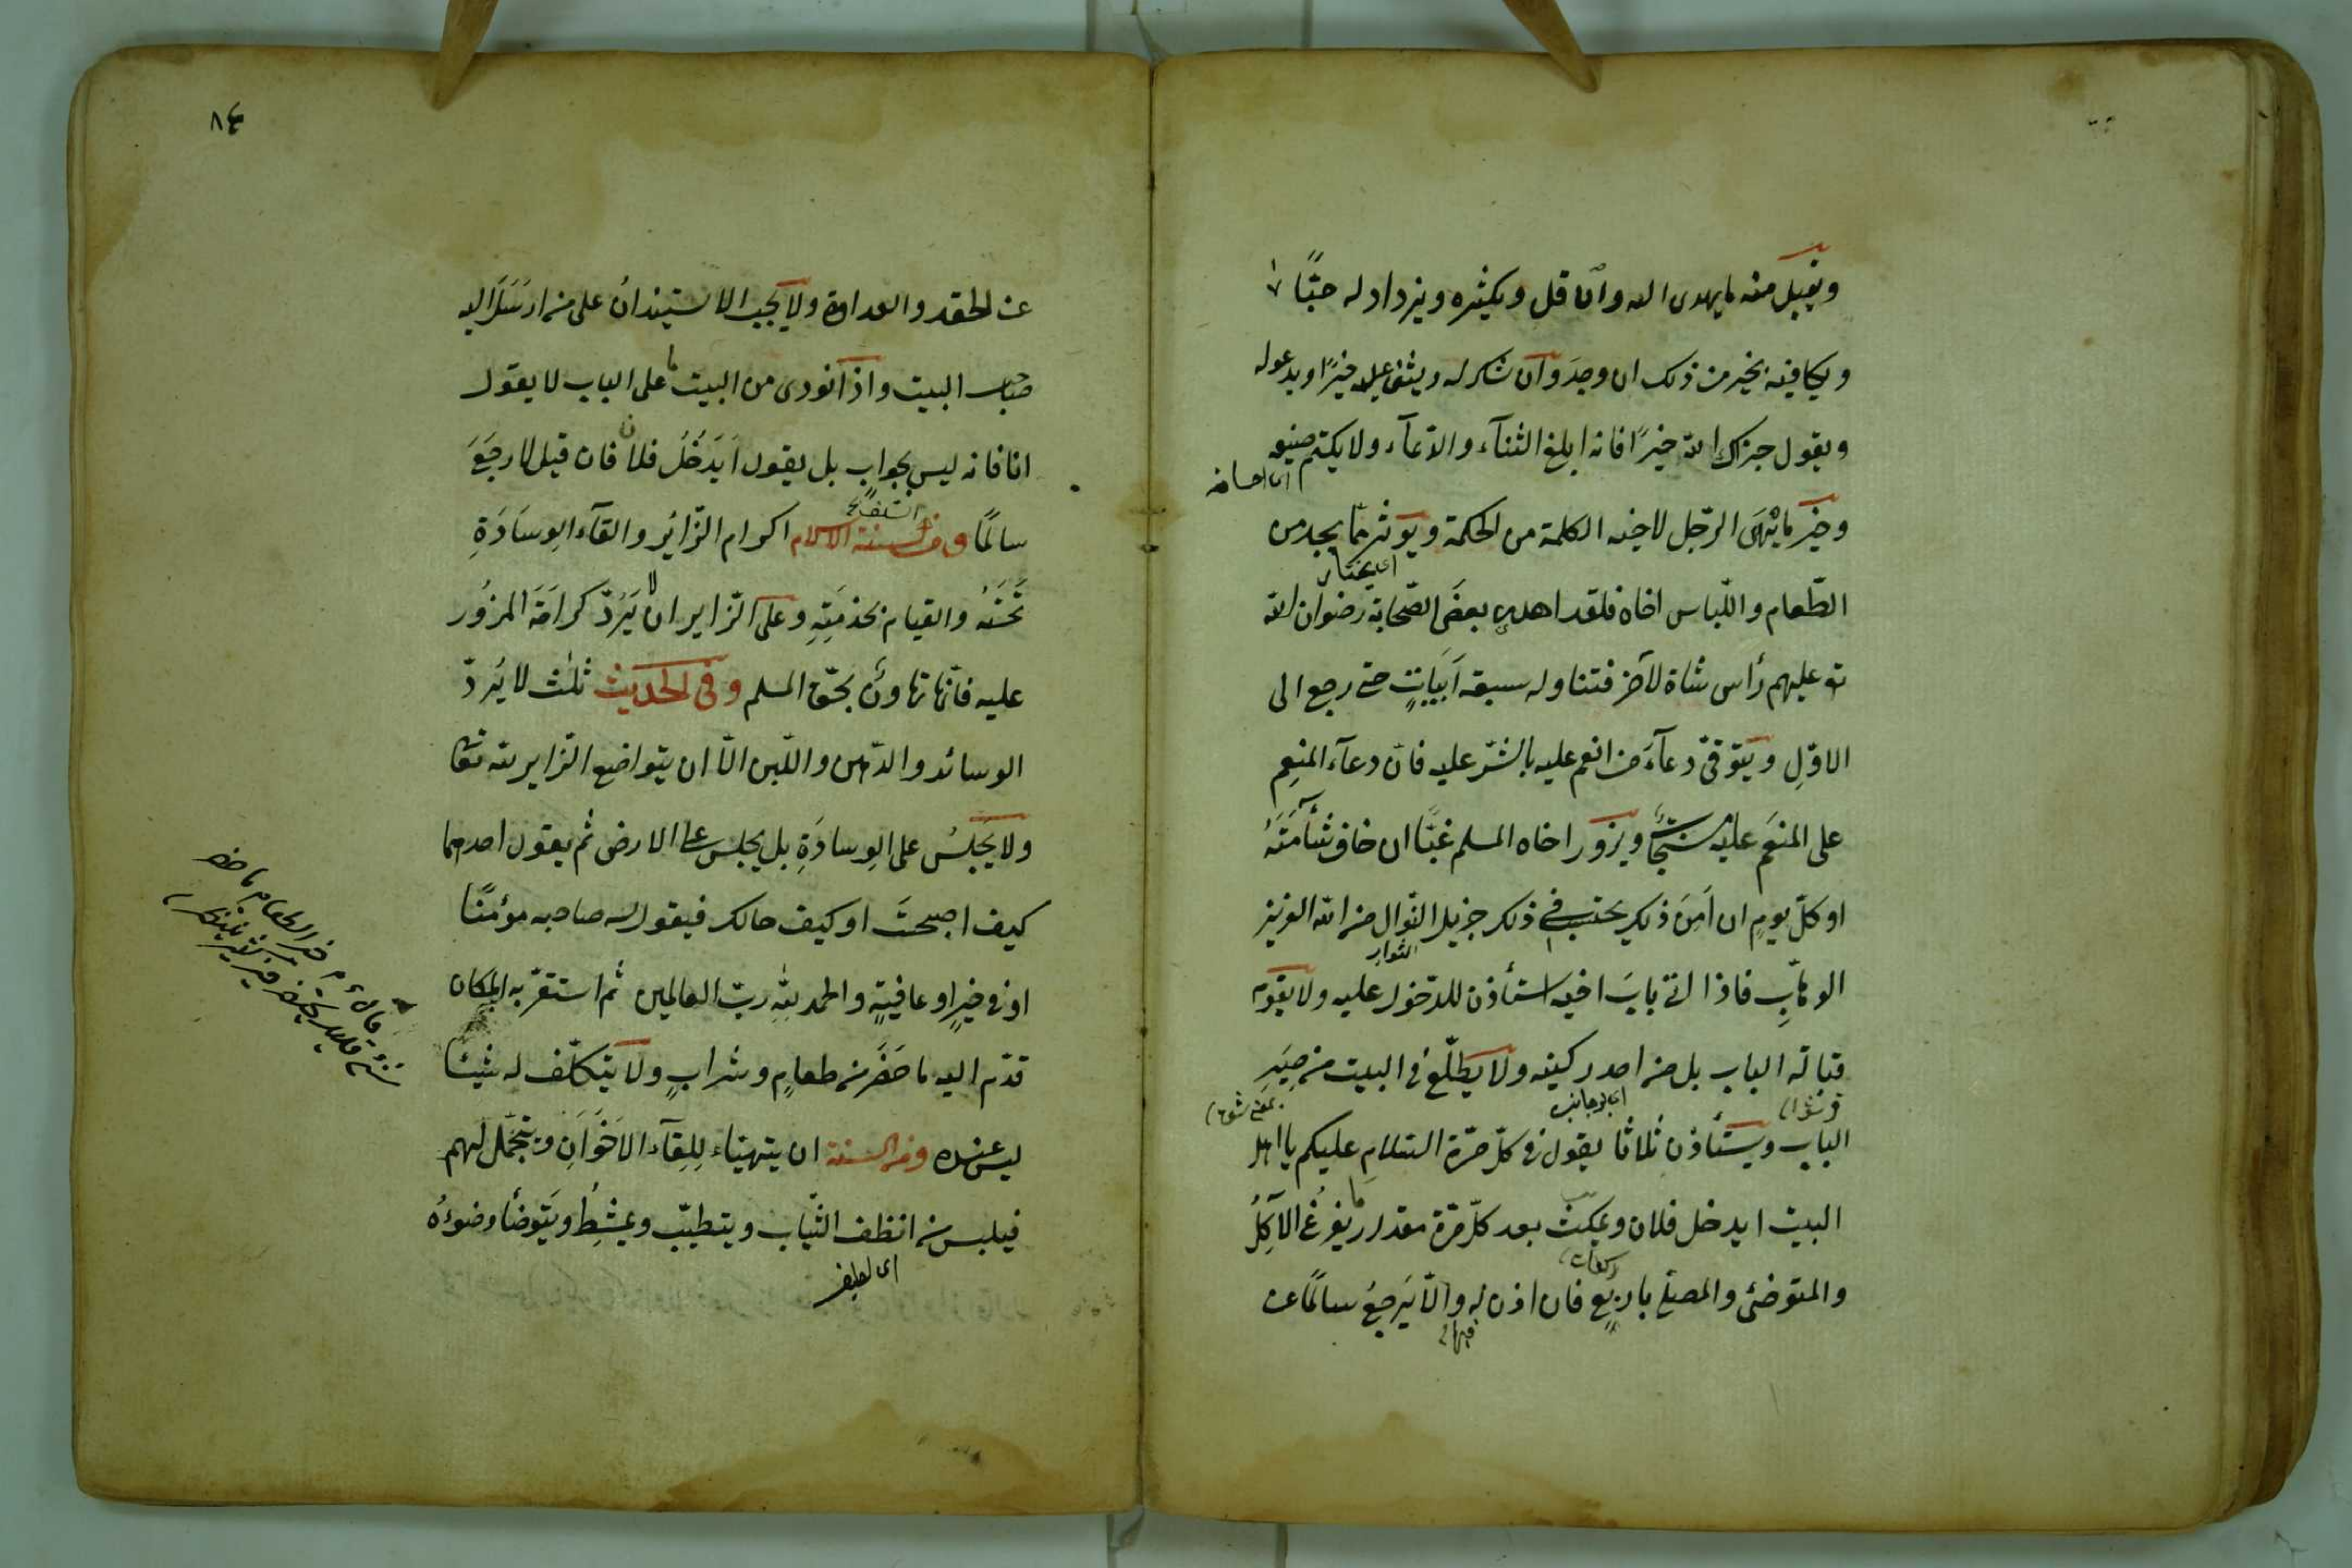 ويقبل منه ما يهدى اليه وان قل ويكثره ويزداد له حبًّا
ويكافيه بخير من ذلك ان وجد وان شكر له ويثنى عليه خيرًا ويدعو له
ويقول جزاك الله خيرًا فانه ابلغ الثناء والدّعاء ولا يكتم صنيعه
اى احسانه
وخير ما يهدى الرّجل لاخيه الكلمة من الحكمة ويؤثر ممّا يجد من
اى يختار
الطّعام واللّباس اخاه فلقد اهدى بعض الصّحابة رضوان الله
تع عليهم رأس شاة لآخر فتناوله سبعة ابيات حتى رجع الى
الاوّل ويتوقّى دعاء من انعم عليه بالشّر عليه فانّ دعاء المنعم
على المنعم عليه مستجاب ويزور اخاه المسلم غبًّا ان خاف شأمته
او كلّ يوم ان امن ذلك يحتسب فى ذلك جزيل النّوال من الله العزيز
الثواب
الوهّاب فاذا اتى باب اخيه استأذن للدّخول عليه ولا يقوم
قبالة الباب بل من احد ركنيه ولا يطّلع فى البيت من صير
اى جانبيه
الباب ويستأذن ثلاثا يقول فى كلّ مرّة السّلام عليكم يا اهل
البيت ايدخل فلان ويمكث بعد كلّ مرّة مقدار ما يفرغ الآكل
ركعات
والمتوضّى والمصلّى باربع فان اذن له والّا يرجع سالمًا عن
٨٤
عن الحقد والعداوة ولا يجب الاستيذان على من ارسل اليه
صاحب البيت واذا نودى من البيت ما على الباب لا يقول
انا فانه ليس بجواب بل يقول ايدخل فلان فان قيل لا رجع
سالمًا ومن السنة الاسلام اكرام الزّائر والقاء الوسادة
تحته والقيام بخدمته وعلى الزّاير ان لا يردّ كرامة المزور
عليه فانّها تهاون بحقّ المسلم وفى الحديث ثلث لا يردّ
الوسائد والدّهن واللّبن الّا ان يتواضع الزّاير لله تعالى
ولا يجلس على الوسادة بل يجلس على الارض ثم يقول احدهما
كيف اصبحت او كيف حالك فيقول له صاحبه مؤمنًا
او فى خير او عافية والحمد لله ربّ العالمين ثم استقرّ به المكان
قدّم اليه ما حضر من طعام وشراب ولا يتكلّف له شيئا
ليس عنده ومن السنة ان يتهيّاء للقاء الاخوان ويتجمّل لهم
فيلبس من انظف الثّياب ويتطيّب ويمشط ويتوضّأ وضوءه
قال م خير الطعام ما حضر